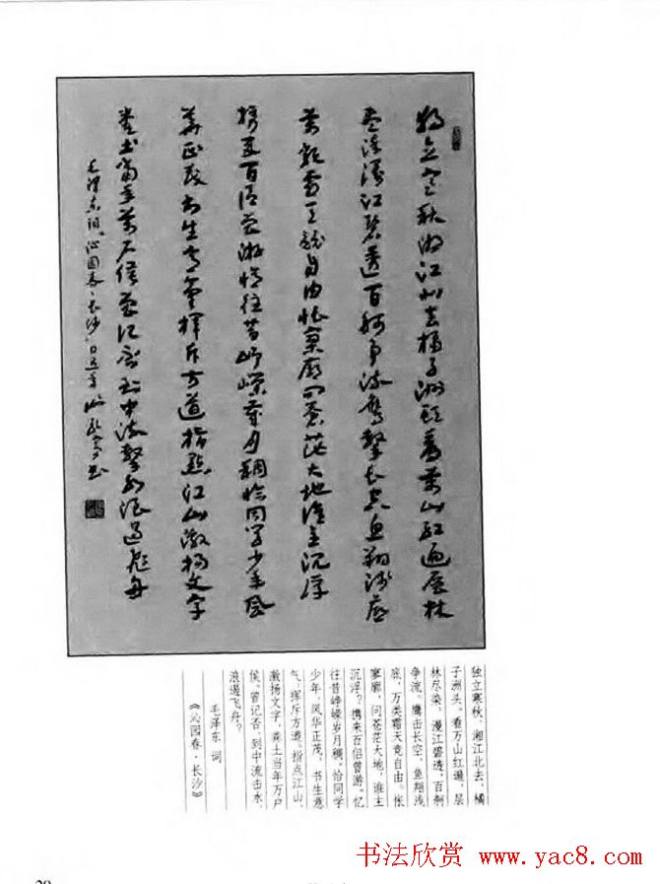 独立寒秋湘江北去橘子洲头看万山红遍层林
尽染漫江碧透百舸争流鹰击长空鱼翔浅底
万类霜天竞自由怅寥廓问苍茫大地谁主沉浮
携来百侣曾游忆往昔峥嵘岁月稠恰同学少年风
华正茂书生意气挥斥方遒指点江山激扬文字
粪土当年万户侯曾记否到中流击水浪遏飞舟
毛泽东词沁园春·长沙 书
独立寒秋，湘江北去，橘
子洲头。看万山红遍，层
林尽染，漫江碧透，百舸
争流。鹰击长空，鱼翔浅
底，万类霜天竞自由。怅
寥廓，问苍茫大地，谁主
沉浮？携来百侣曾游，忆
往昔峥嵘岁月稠。恰同学
少年，风华正茂，书生意
气，挥斥方遒。指点江山，
激扬文字，粪土当年万户
侯。曾记否，到中流击水，
浪遏飞舟？
毛泽东 词
《沁园春·长沙》
书法欣赏 www.yac8.com